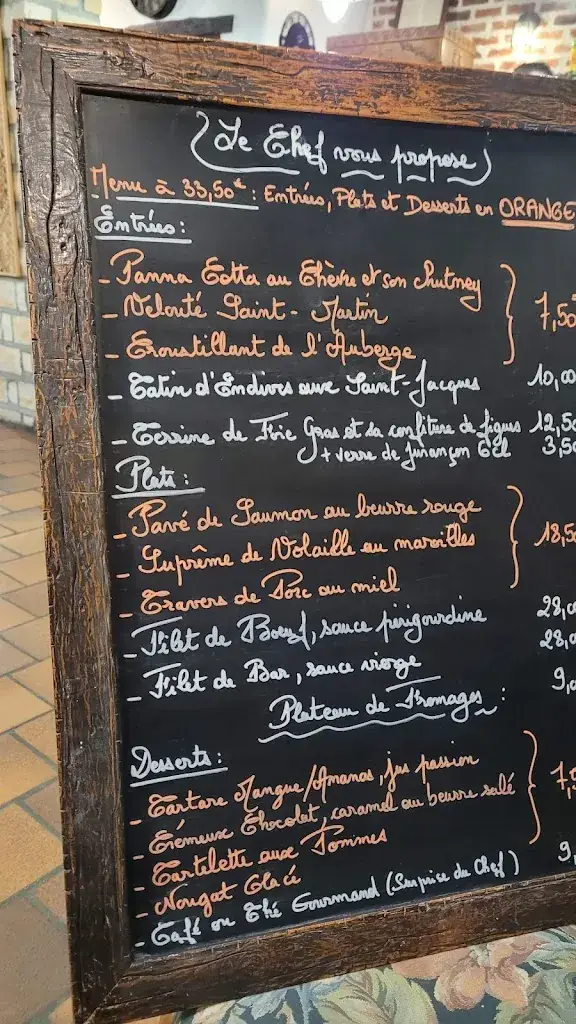 Le Chef vous propose
Menu à 33,50€ : Entrées, Plats et Desserts en ORANGE
Entrées :
- Panna Cotta au Chèvre et son chutney
- Velouté Saint-Martin 7,50
- Croustillant de l'Auberge
- Tatin d'Endives aux Saint-Jacques 10,00
- Terrine de Foie Gras et sa confiture de figues 12,50
+ verre de Jurançon 6cl 3,50
Plats :
- Pavé de Saumon au beurre rouge
- Suprême de Volaille au maroilles 18,50
- Travers de Porc au miel
- Filet de Boeuf, sauce périgourdine 28,00
- Filet de Bar, sauce vierge 28,0
Plateau de Fromages : 9,0
Desserts :
- Tartare Mangue/Ananas, jus passion
- Crémeux Chocolat, caramel au beurre salé 7,5
- Tartelette aux Pommes
- Nougat Glacé
- Café ou Thé Gourmand (Surprise du Chef) 9,